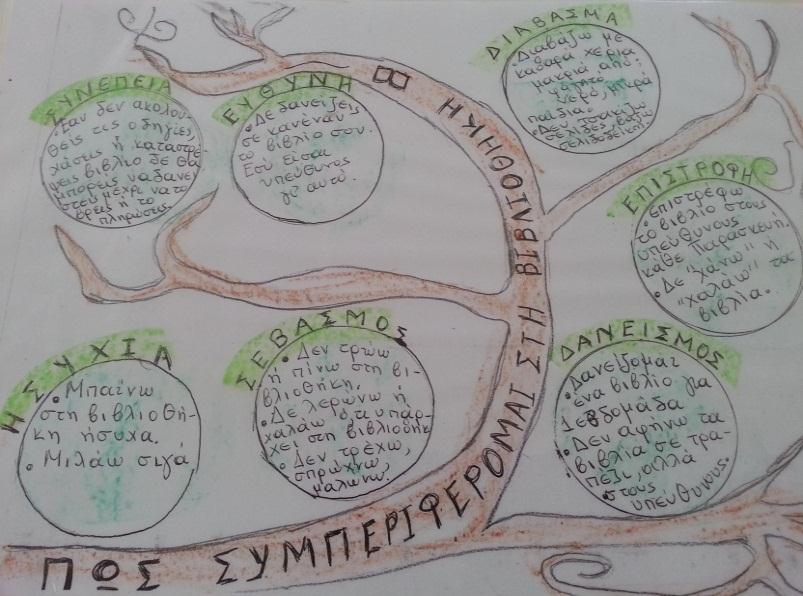 ΠΩΣ ΣΥΜΠΕΡΙΦΕΡΟΜΑΙ ΣΤΗ ΒΙΒΛΙΟΘΗΚΗ
ΣΥΝΕΠΕΙΑ
• Εαν δεν ακολου-
θείς τις οδηγίες,
χάσεις ή καταστρέ-
ψεις βιβλίο δε θα
μπορείς να δανει-
στείς μέχρι να το
βρεις ή το
πληρώσεις.
ΕΥΘΥΝΗ
• Δε δανείζεις
σε κανέναν
το βιβλίο σου.
Εσύ είσαι
υπεύθυνος
γι' αυτό.
ΔΙΑΒΑΣΜΑ
Διαβάζω με
καθαρά χέρια
μακριά από:
φαγητό
νερό, μικρά
παιδιά.
• Δεν τσακίζω
σελίδες, βάζω
σελιδοδείκτη
ΕΠΙΣΤΡΟΦΗ
• επιστρέφω
το βιβλίο στους
υπεύθυνους
κάθε Παρασκευή.
• Δε "χάνω" ή
"χαλάω" τα
βιβλία.
ΗΣΥΧΙΑ
• Μπαίνω
στη βιβλιοθή-
κη ήσυχα.
• Μιλάω σιγά
ΣΕΒΑΣΜΟΣ
• Δεν τρώω
ή πίνω στη βι-
βλιοθήκη.
• Δε λερώνω ή
χαλάω ό,τι υπάρ-
χει στη βιβλιοθήκη
• Δεν τρέχω,
σπρώχνω,
μαλώνω.
ΔΑΝΕΙΣΜΟΣ
• Δανείζομαι
ένα βιβλίο για
1 εβδομάδα
• Δεν αφήνω τα
βιβλία σε τρα-
πέζι, αλλά
στους
υπεύθυνους.